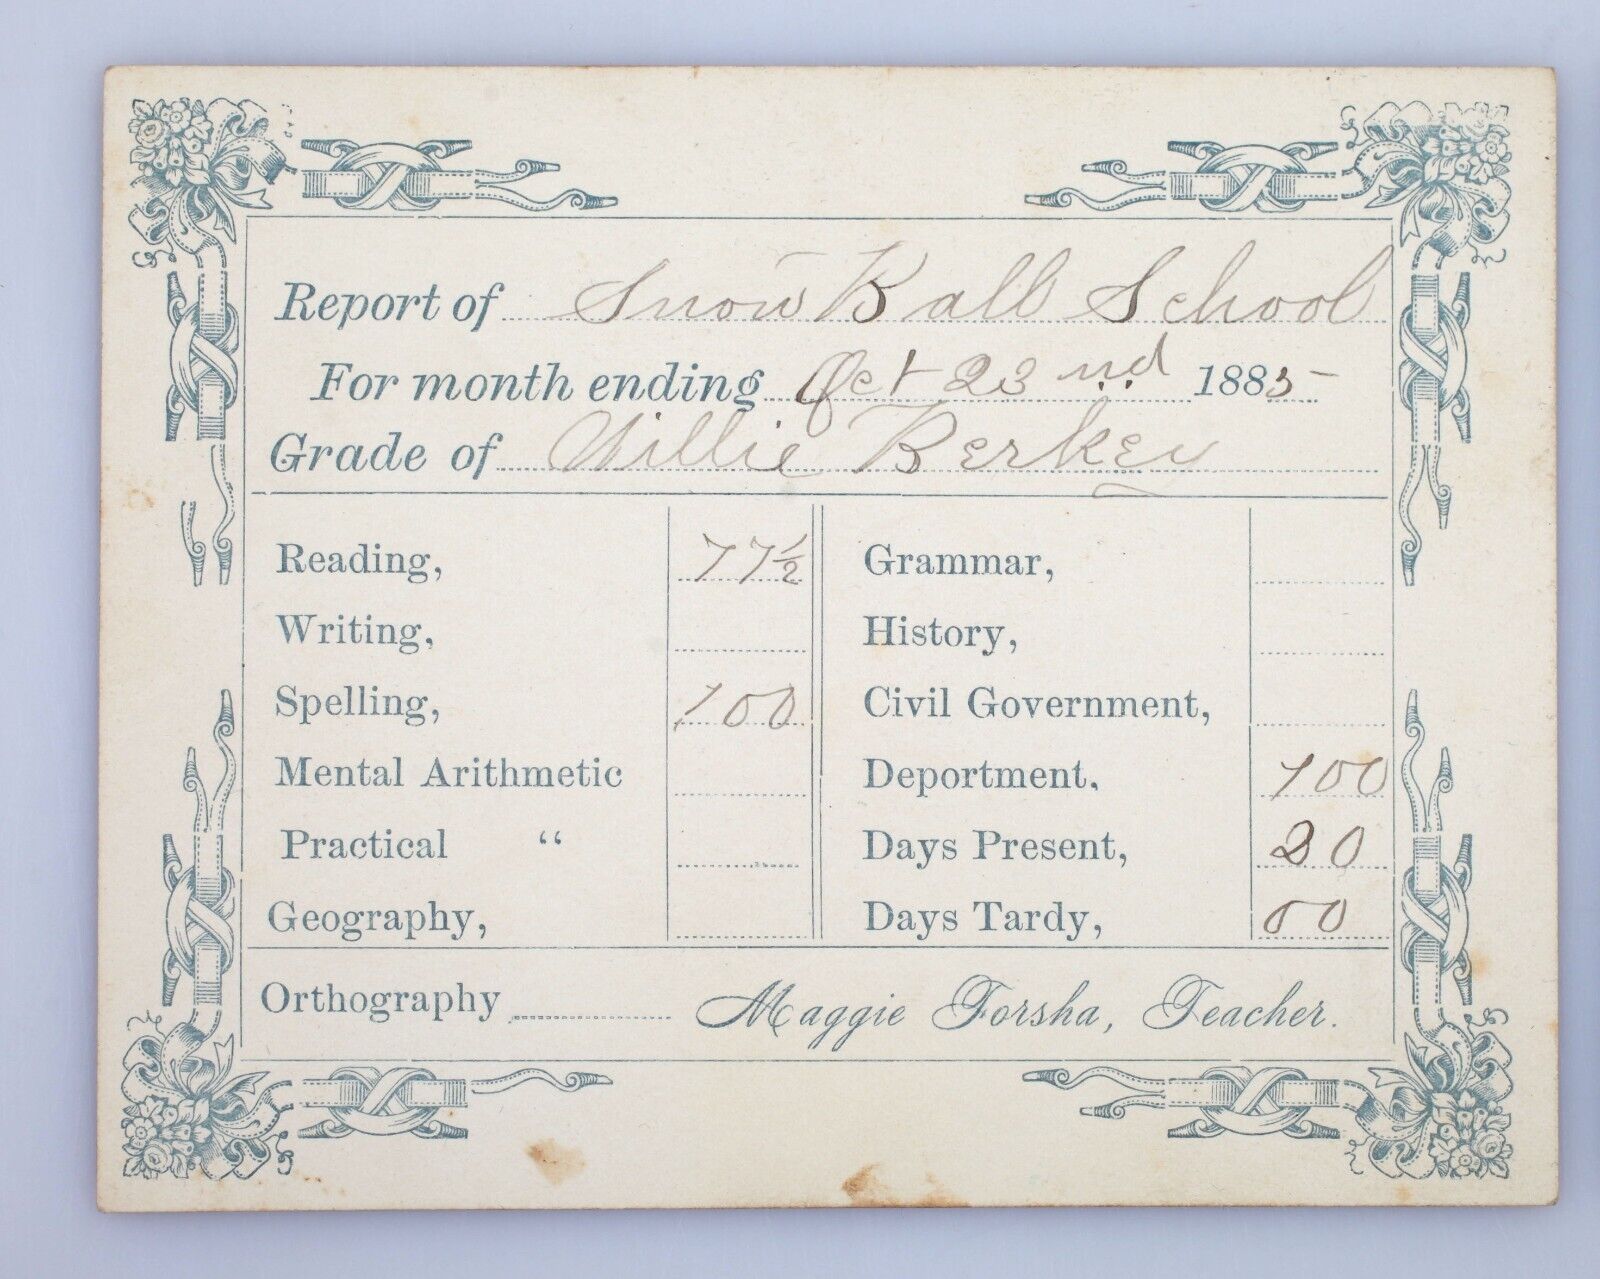 Report of Snow Ball School
For month ending Oct 23 nd 1885
Grade of Willie Berkey
Reading, 77 1/2 Grammar,
Writing, History,
Spelling, 100 Civil Government,
Mental Arithmetic Deportment, 100
Practical “ Days Present, 20
Geography, Days Tardy, 00
Orthography Maggie Forsha, Teacher.